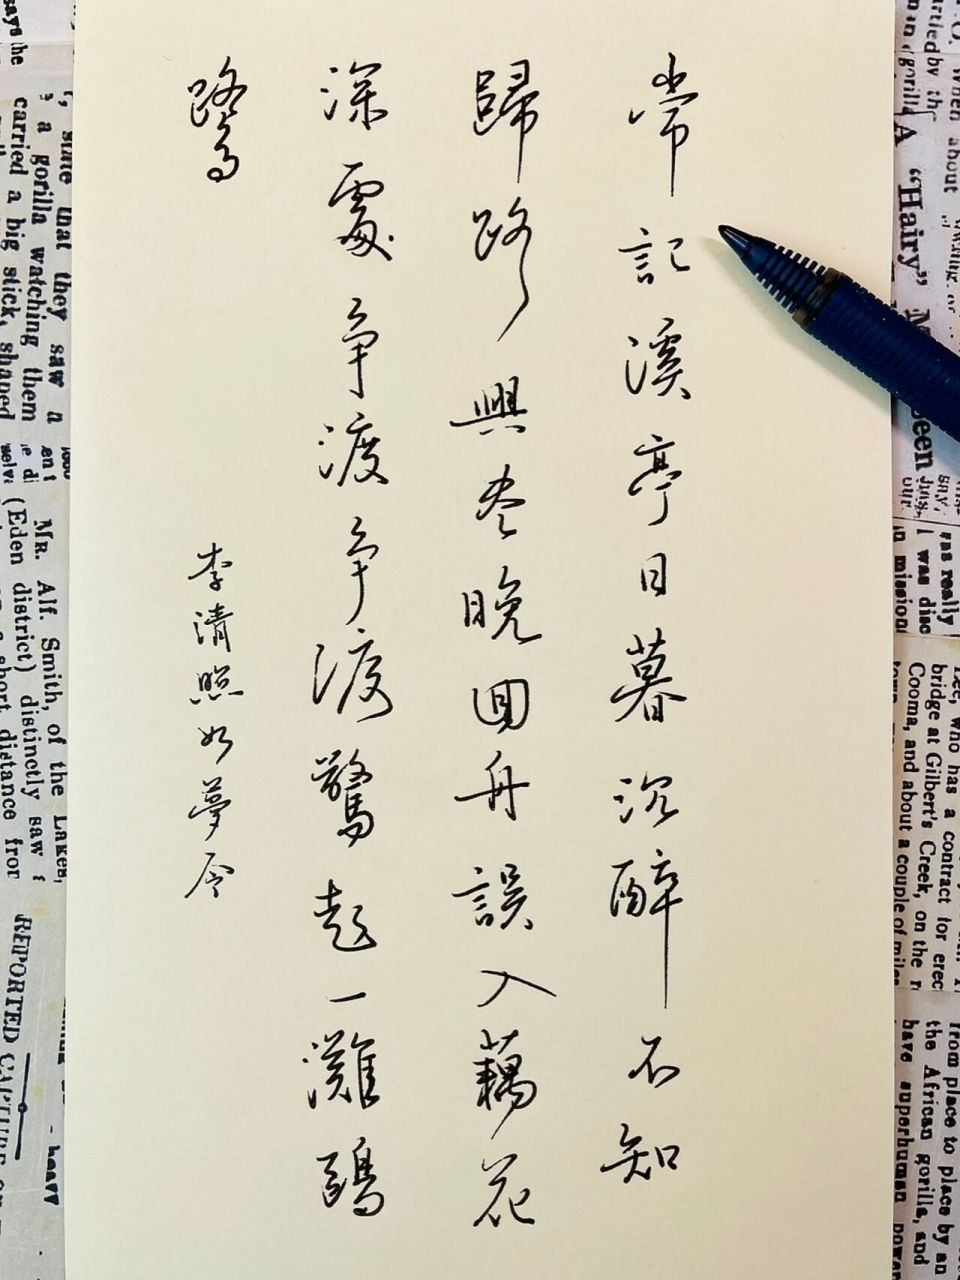 常記溪亭日暮沉醉不知
歸路興盡晚回舟誤入藕花
深處爭渡爭渡驚起一灘鷗
鷺
李清照如夢令
says the
state that they saw a
a gorilla watching them
carried a big stick, shaped
MR. Alf. Smith, of the Lakes,
(Eden district) distinctly saw
short distance from
REPORTED
heavy
"Hairy"
was really
I was
in mission
Lee, who has a
bridge at Gilbert's Creek, on the
Cooma, and about a couple of miles
contract for
from place to place by an
the African gorilla, and
have superhuman power